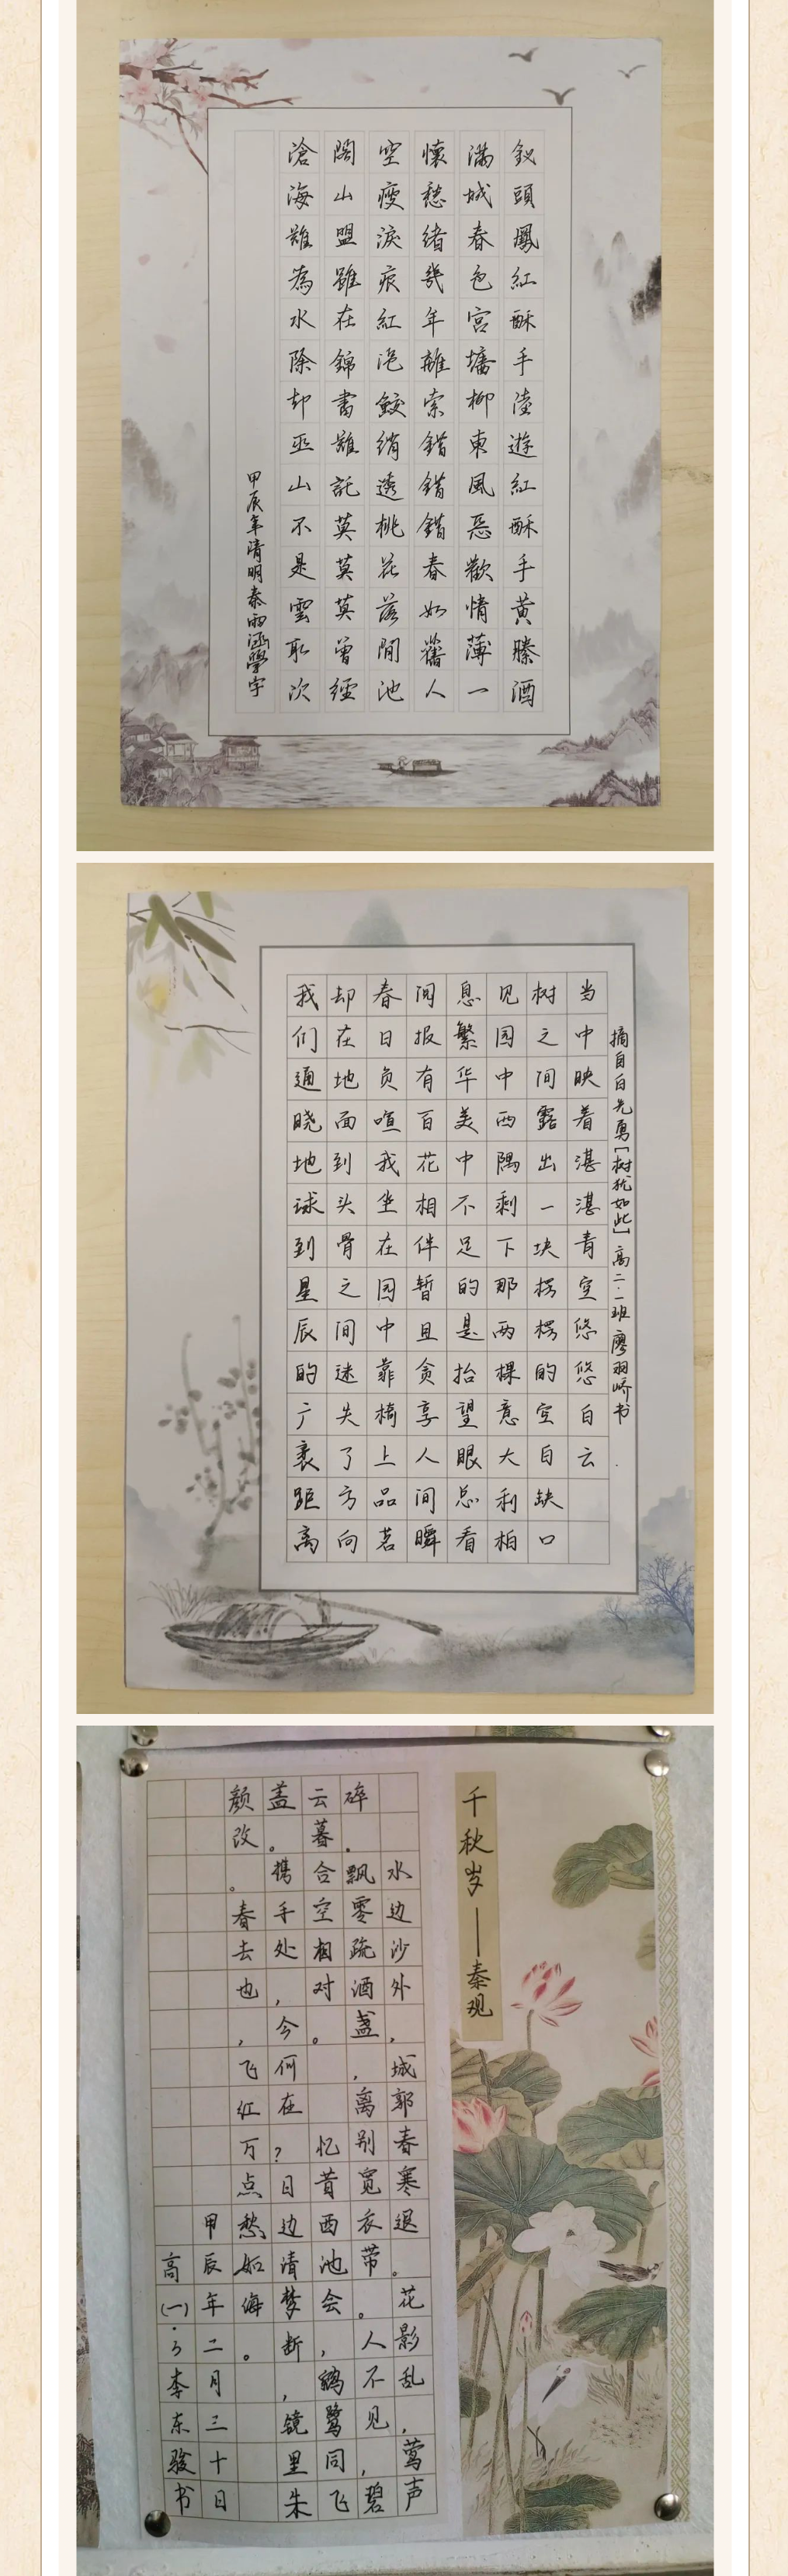 釵頭鳳紅酥手陸遊紅酥手黃縢酒
滿城春色宮墻柳東風惡歡情薄一
懷愁緒幾年離索錯錯錯春如舊人
空瘦淚痕紅浥鮫綃透桃花落閒池
閣山盟雖在錦書難託莫莫莫曾經
滄海難為水除却巫山不是雲取次
甲辰年清明秦雨涵學字
摘自白先勇［树犹如此］高二·一班廖羽峤书
当中映着湛湛青空悠悠白云
树之间露出一块楞楞的空白缺口
见园中西隅剩下那两棵意大利柏
息繁华美中不足的是抬望眼总看
间报有百花相伴暂且贪享人间瞬
春日负喧我坐在园中靠椅上品茗
却在地面到头骨之间迷失了方向
我们通晓地球到星辰的广袤距离
千秋岁——秦观
水边沙外，城郭春寒退。花影乱，莺声
碎。飘零疏酒盏，离别宽衣带。人不见，碧
云暮合空相对。忆昔西池会，鹓鹭同飞
盖。携手处，今何在？日边清梦断，镜里朱
颜改。春去也，飞红万点愁如海。
甲辰年二月三十日
高(一)·3李东骏书